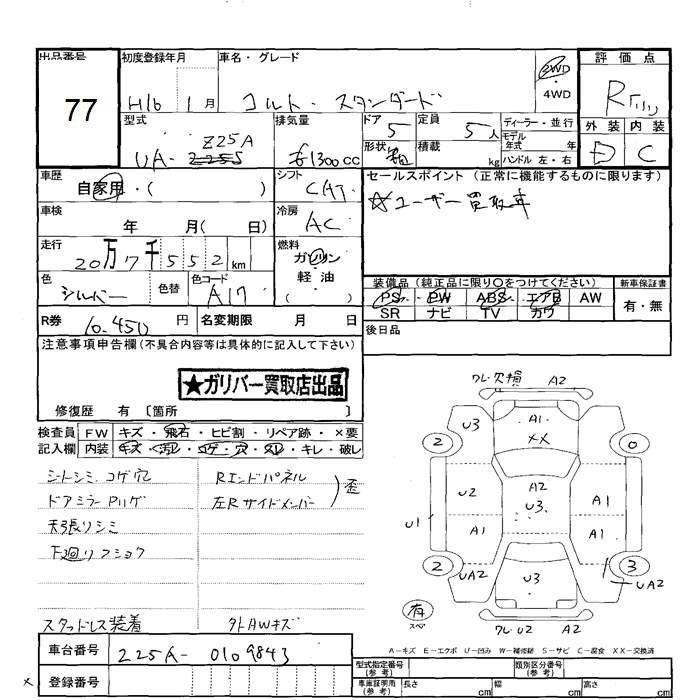 出品番号 77
初度登録年月 H16 1月
車名・グレード コルト・スタンダード
2WD・4WD
評価点 R
外装 内装
D C
型式 UA- Z25A
排気量 1300cc
ドア 5
定員 5人
ディーラー・並行
モデル年式 年
形状
積載 kg
ハンドル 左・右
車歴 自家用・( )
シフト CAT
セールスポイント (正常に機能するものに限ります)
☆ユーザー買取車
車検 年 月( 日)
冷房 AC
走行 20万7千552km
燃料 ガソリン 軽油 ( )
色 シルバー 色替 色コード A17
装備品 (純正品に限り○をつけてください)
新車保証書
PS PW ABS エアB AW
SR ナビ TV カワ
有・無
R券 10.450円
名変期限 月 日
後日品
注意事項申告欄(不具合内容等は具体的に記入して下さい)
★ガリバー買取店出品
修復歴 有 〔箇所 〕
検査員記入欄
FW キズ・飛石・ヒビ割・リペア跡・×要
内装 キズ・汚レ・コゲ・穴・スレ・キレ・破レ
シートシミ コゲ穴
ドアミラー Pハゲ
天張リシミ
下廻リフショク
Rエンドパネル
左Rサイドメンバー
歪
スタッドレス装着
外AWキズ
ワレ・欠損 A2
U3 A1 XX
2 0
U2 A2 U3 A1
U1 A1 A1
2 3
UA2 U3 UA2
有 スペア
ワレ・U2 A2
A－キズ E－エクボ U－凹み W－補修跡 S－サビ C－腐食 XX－交換済
車台番号 Z25A- 0109843
登録番号
型式指定番号(参考)
類別区分番号(参考)
車庫証明用(参考) 長さ cm 幅 cm 高さ cm